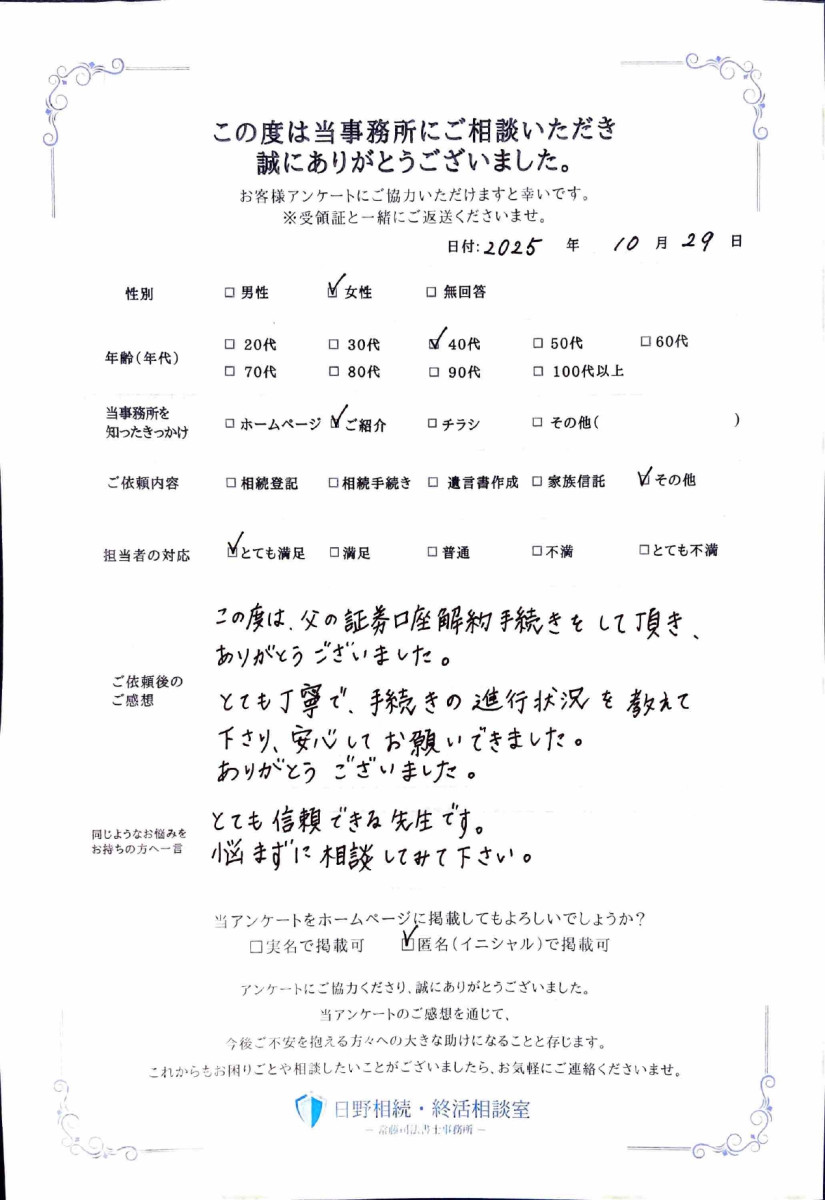 この度は当事務所にご相談いただき
誠にありがとうございました。
お客様アンケートにご協力いただけますと幸いです。
※受領証と一緒にご返送くださいませ。
日付:2025 年 10 月 29 日
性別 □男性 ☑女性 □無回答
年齢(年代)
□ 20代 □ 30代 ☑ 40代 □ 50代 □ 60代
□ 70代 □ 80代 □ 90代 □ 100代以上
当事務所を
知ったきっかけ
□ホームページ ☑ご紹介 □チラシ □ その他( )
ご依頼内容 □相続登記 □相続手続き □ 遺言書作成 □家族信託 ☑その他
担当者の対応 ☑とても満足 □満足 □普通 □不満 □とても不満
ご依頼後の
ご感想
この度は、父の証券口座解約手続きをして頂き、
ありがとうございました。
とても丁寧で、手続きの進行状況を教えて
下さり、安心してお願いできました。
ありがとうございました。
同じようなお悩みを
お持ちの方へ一言
とても信頼できる先生です。
悩まずに相談してみて下さい。
当アンケートをホームページに掲載してもよろしいでしょうか?
□実名で掲載可 ☑匿名(イニシャル)で掲載可
アンケートにご協力くださり、誠にありがとうございました。
当アンケートのご感想を通じて、
今後ご不安を抱える方々への大きな助けになることと存じます。
これからもお困りごとや相談したいことがございましたら、お気軽にご連絡くださいませ。
日野相続・終活相談室
司法書士事務所